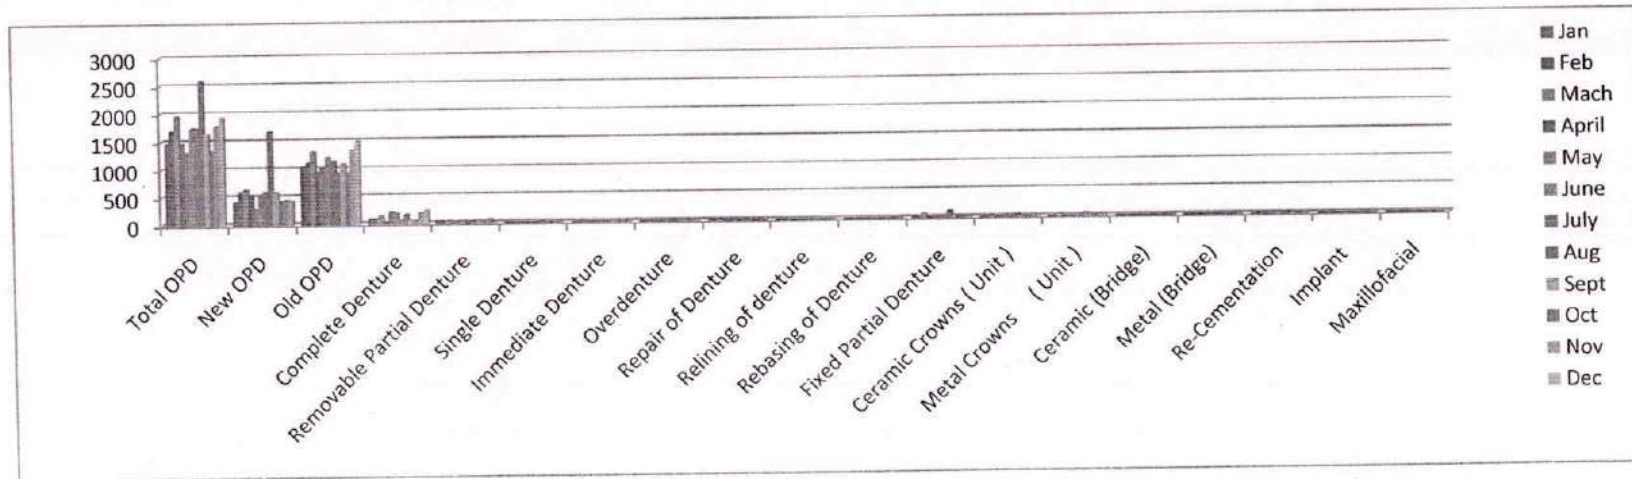 3000
2500
2000
1500
1000
500
0
Total OPD
New OPD
Old OPD
Complete Denture
Removable Partial Denture
Single Denture
Immediate Denture
Overdenture
Repair of Denture
Relining of denture
Rebasing of Denture
Fixed Partial Denture
Ceramic Crowns ( Unit )
Metal Crowns ( Unit )
Ceramic (Bridge)
Metal (Bridge)
Re-Cementation
Implant
Maxillofacial
Jan
Feb
Mach
April
May
June
July
Aug
Sept
Oct
Nov
Dec